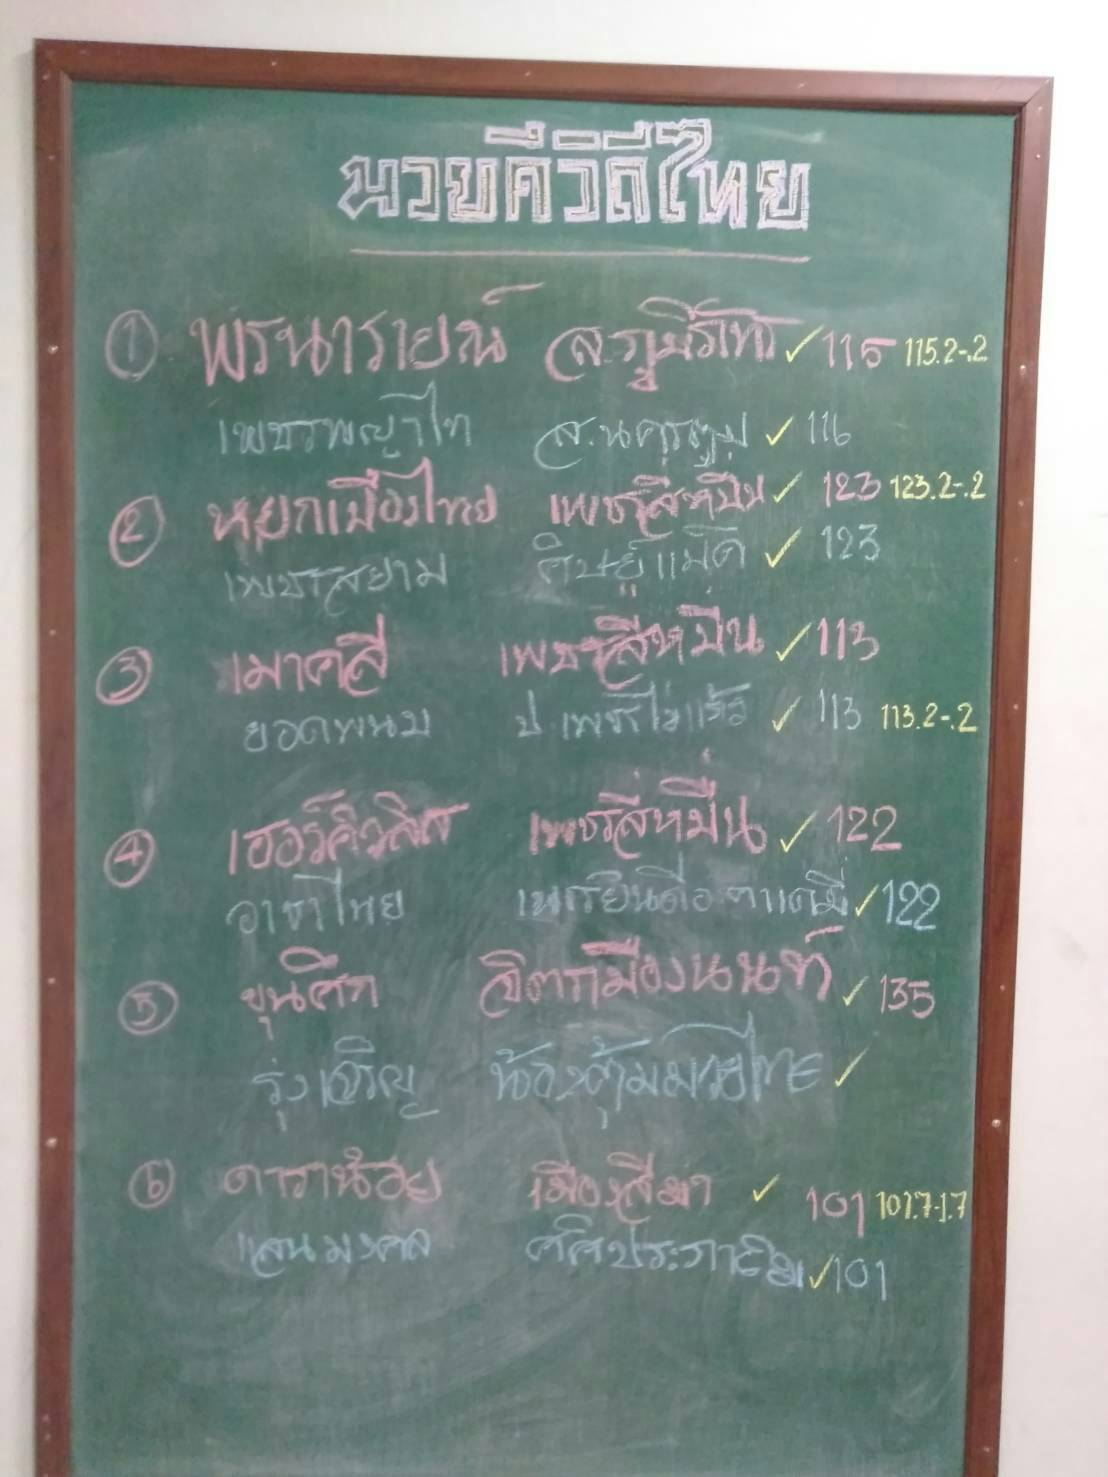 มวยดีวิถีไทย
1 พรนารายณ์ ส.ภูมิรัไทร ✓ 115 115.2-.2
เพชรพญาไท ส.นครตูม ✓ 116
2 หยกเมืองไทย เพชรสี่หมื่น ✓ 123 123.2-.2
เพชรสยาม ศิษย์แม็ค ✓ 123
3 เมาคลี เพชรสี่หมื่น ✓ 113
ยอดพนม ป.เพชรไข่แก้ว ✓ 113 113.2-.2
4 เฮอร์คิวลิส เพชรสี่หมื่น ✓ 122
อาชาไทย ✓ 122
5 ขุนศึก จิตรเมืองนนท์ ✓ 135
รุ่งเจริญ น้องตุ้มมวยไทย ✓
6 ดาราน้อย เมืองสีมา ✓ 101 101.7-1.7
แสนมงคล ✓ 101